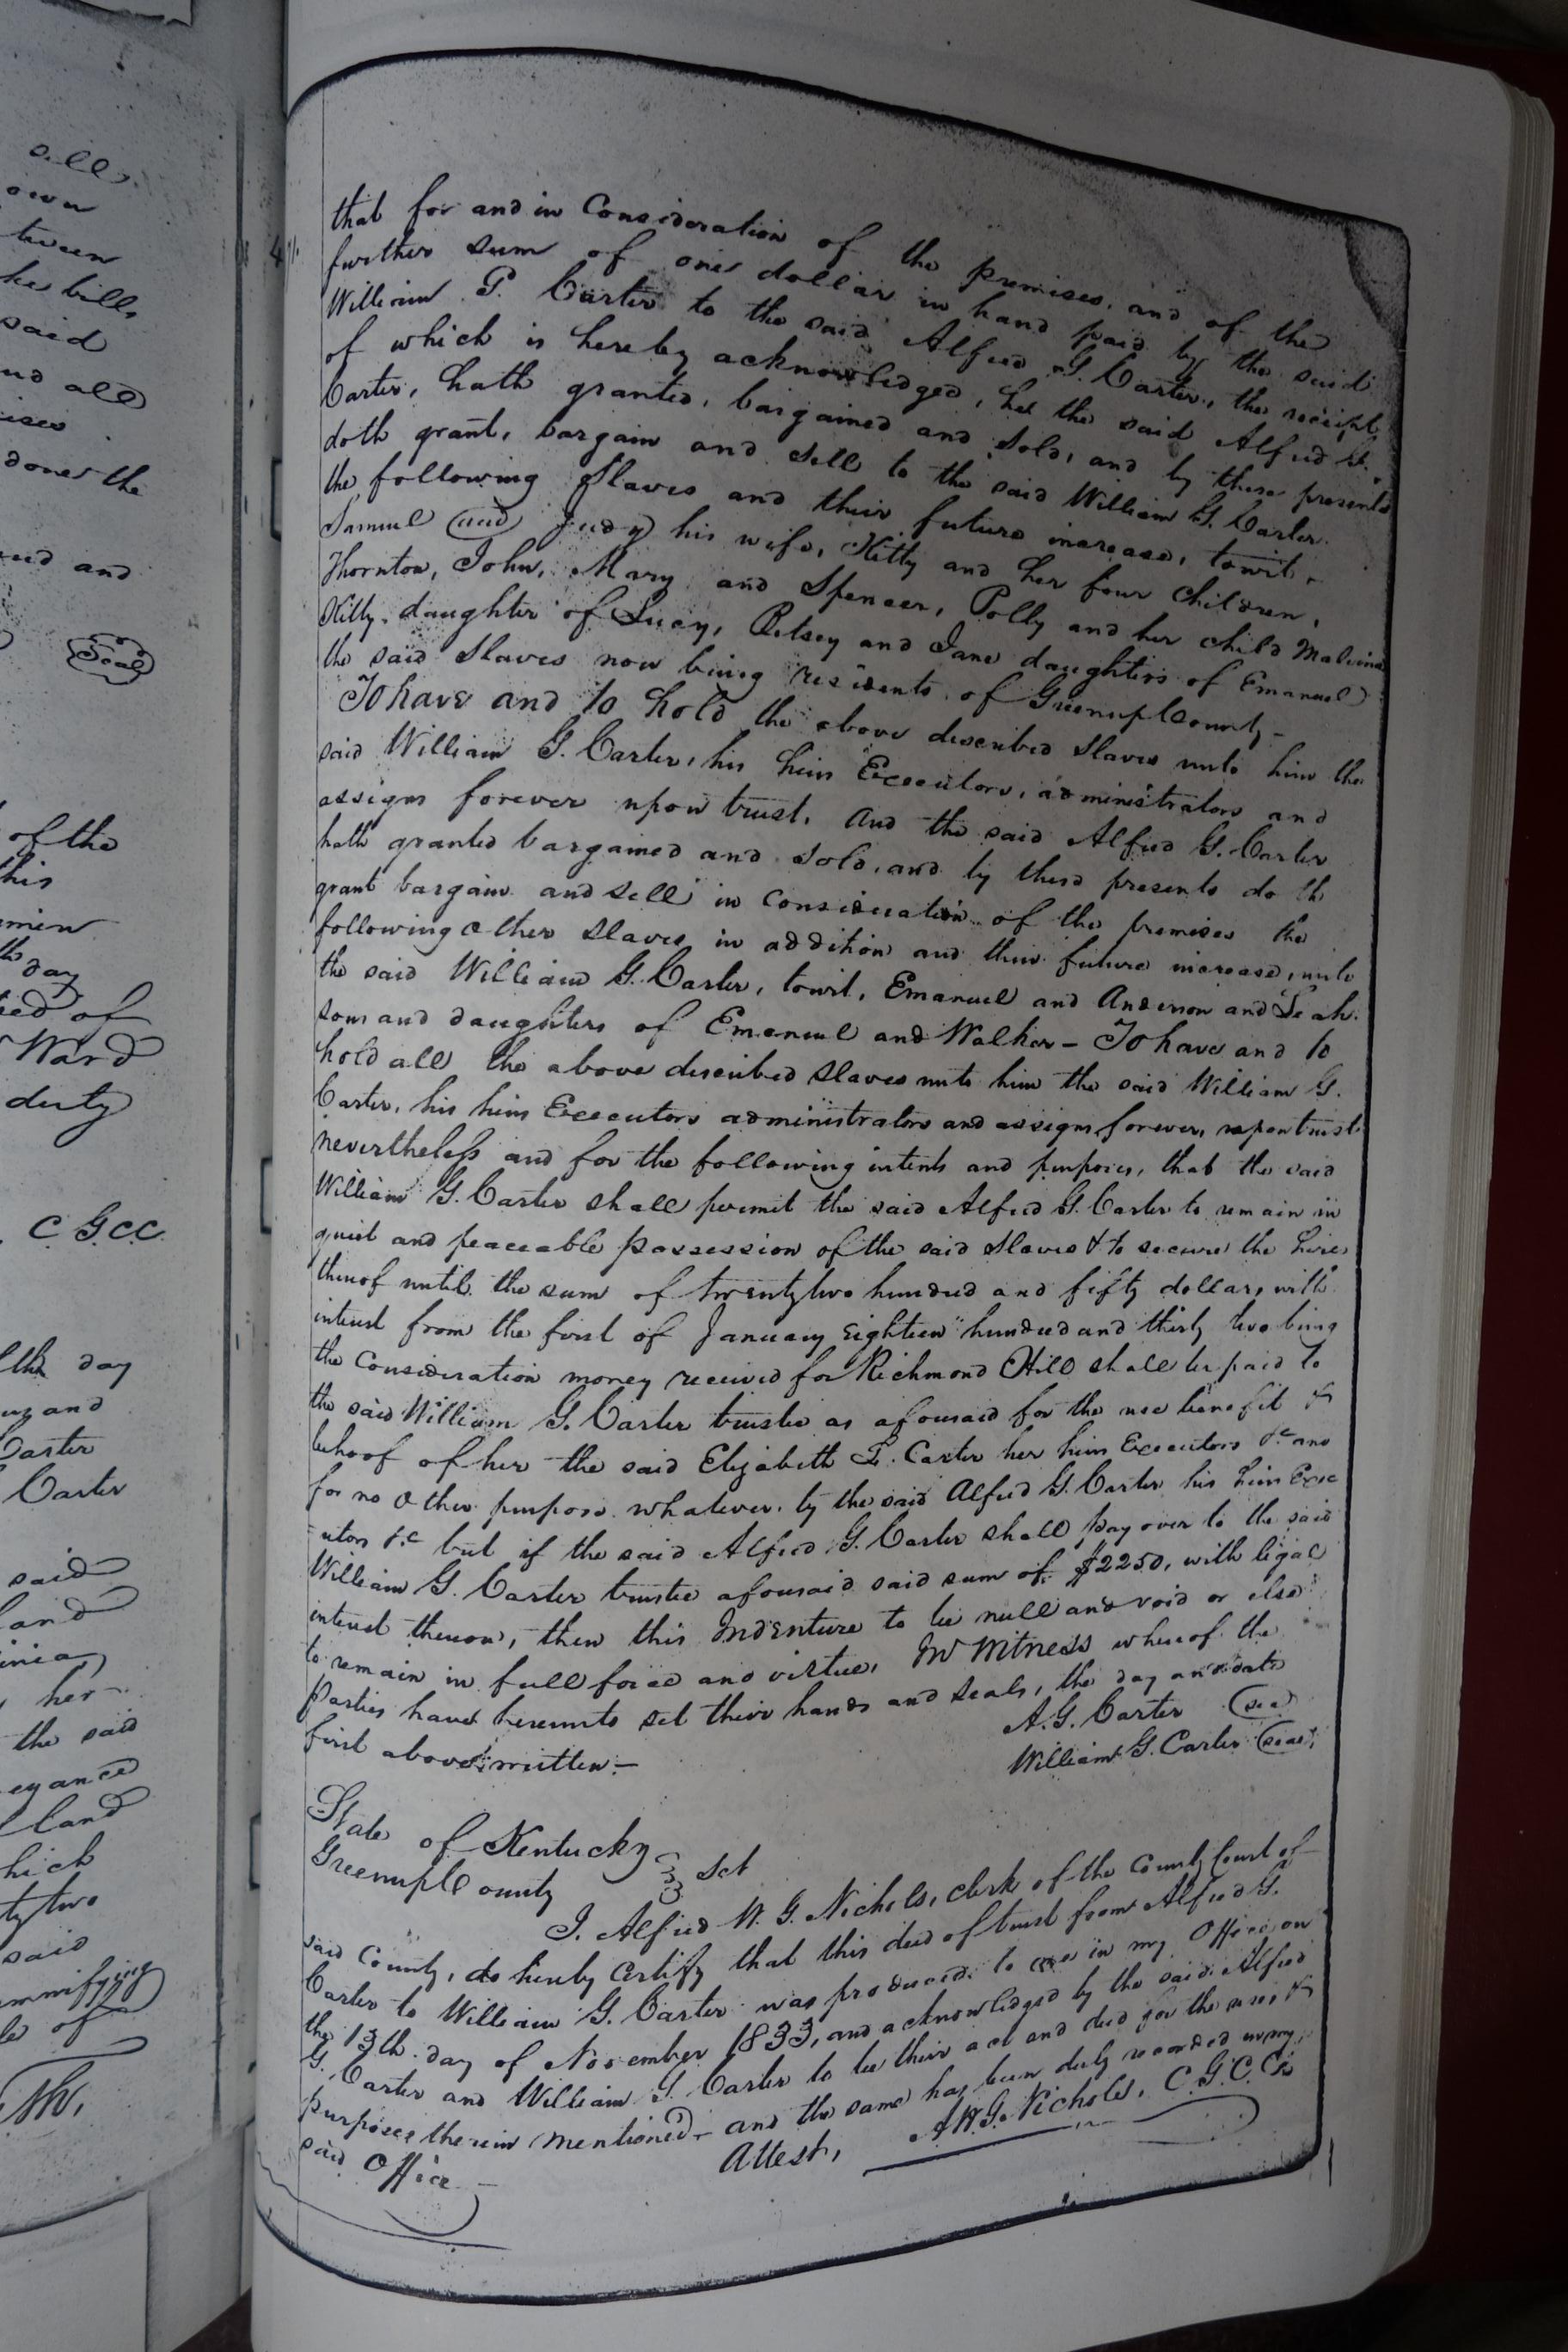 all,
own
tween
he bills
said
and all
ises
done the
and and
Seal
of the
his
day
ied of
Ward
duty
C G CC
the day
and
Carter
Carter
said
land
inia,
her
the said
eyance
land
hick
ty two
said
of
that for and in Consideration of the premises, and of the
further sum of one dollar in hand paid by the said
William P. Carter to the said Alfred G. Carter, the receipt
of which is hereby acknowledged, he the said Alfred G.
Carter, hath granted, bargained and sold, and by these presents
doth grant, bargain and sell to the said William G. Carter
the following slaves and their future increase, towit,
Samuel (and) Judy his wife, Kitty and her four children,
Thornton, John, Mary and Spencer, Polly and her child Malvina
Kitty daughter of Lucy, Betsey and Jane daughters of Emanuel
the said slaves now being residents of Greenup County—
To have and to hold the above described slaves unto him the
said William G. Carter, his heirs Executors, administrators and
assigns forever upon trust, And the said Alfred G. Carter
hath granted bargained and sold, and by these presents do th
grant bargain and sell in consideration of the premises the
following other slaves in addition and their future increase, unto
the said William G. Carter, towit, Emanuel and Anderson and Leah
sons and daughters of Emanuel and Walker – To have and to
hold all the above described slaves unto him the said William G.
Carter, his heirs Executors administrators and assigns forever, upon trust
nevertheless and for the following intents and purposes, that the said
William G. Carter shall permit the said Alfred G. Carter to remain in
quiet and peaceable possession of the said slaves & to secure the hire
thereof until the sum of twenty two hundred and fifty dollars with
interest from the first of January eighteen hundred and thirty two being
the consideration money received for Richmond Hill shall be paid to
the said William G. Carter trustee as aforesaid for the use benefit &
behoof of her the said Elizabeth Carter her heirs Executors &c and
for no other purpose whatever, by the said Alfred G. Carter his heirs Exec
=utors &c but if the said Alfred G. Carter shall pay over to the said
William G. Carter trustee aforesaid said sum of $2250, with legal
interest thereon, then this Indenture to be null and void or else
to remain in full force and virtue, In Witness whereof the
parties have hereunto set their hands and seals, the day and date
first above written—
A. G. Carter (seal)
William G. Carter (seal)
State of Kentucky
Greenup County } Sct
I. Alfred W. G. Nichols, clerk of the County Court of
said County, do hereby certify that this deed of trust from Alfred G.
Carter to William G. Carter was produced to me in my Office on
the 13th. day of November 1833, and acknowledged by the said Alfred
G. Carter and William G. Carter to be their act and deed for the uses &
purposes therein mentioned – and the same has been duly recorded in my
said Office—
Attest, A W G. Nichols, C. G. C. C